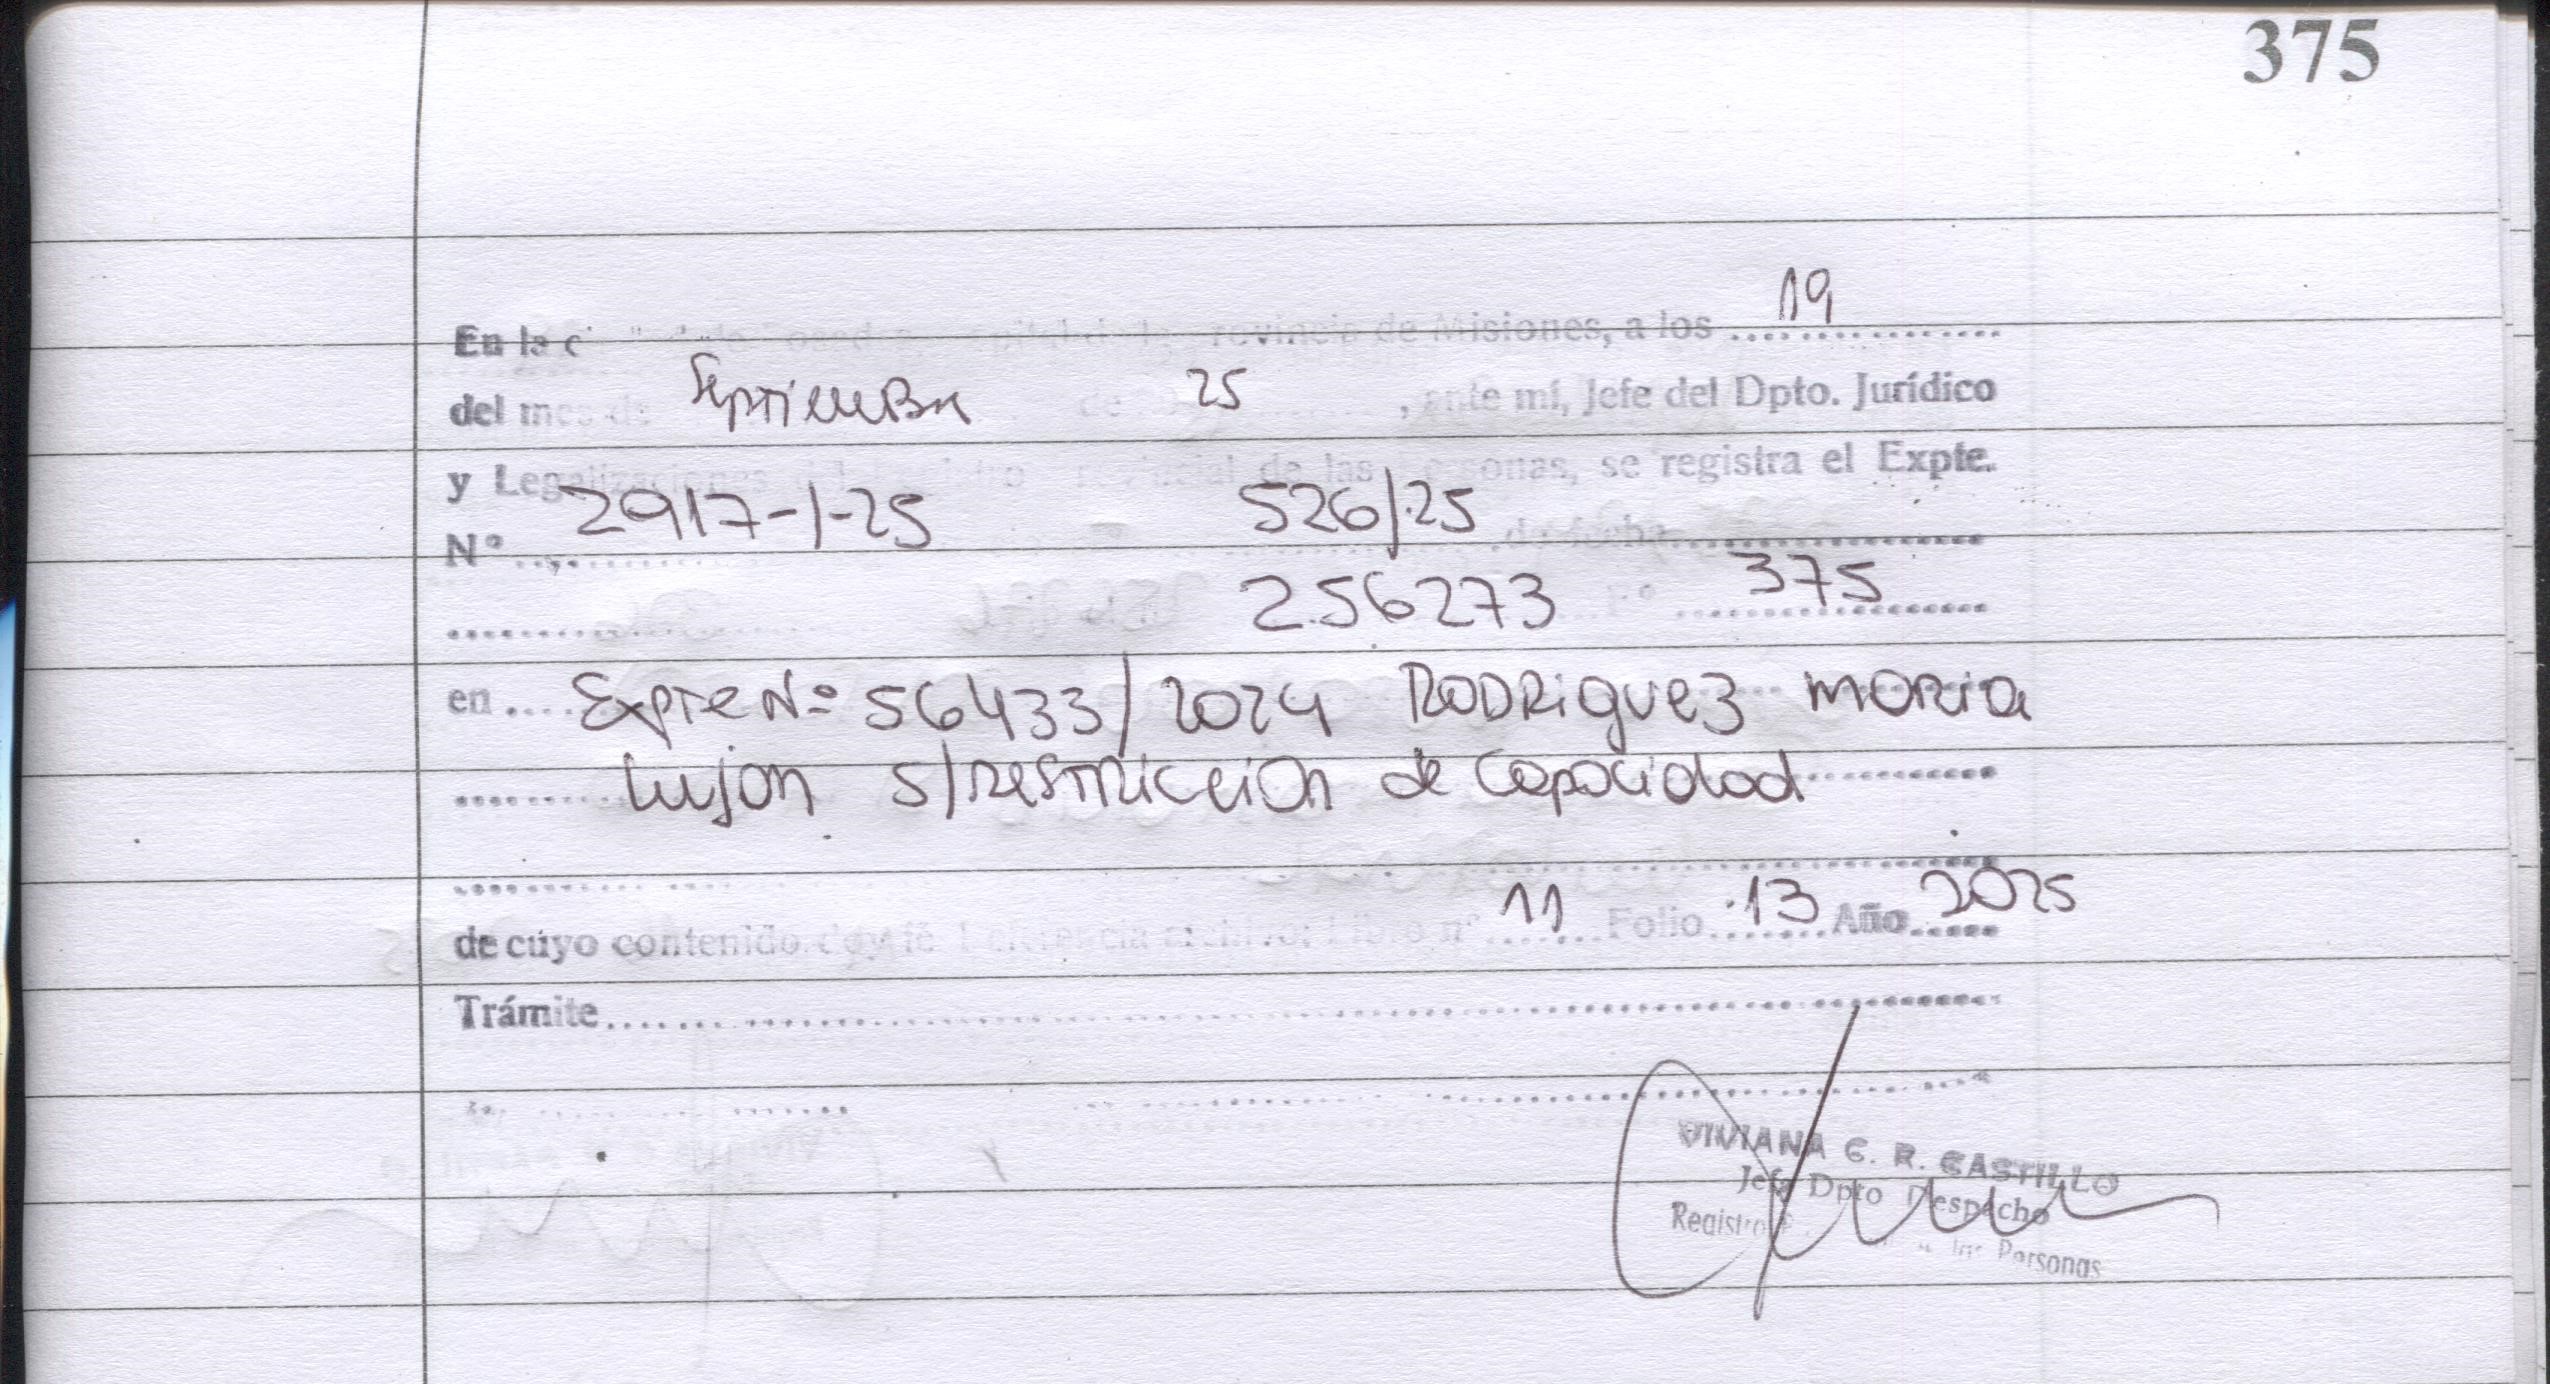 375
En la c de Misiones, a los 19
del mes de Septiembre 25, ante mí, Jefe del Dpto. Jurídico
y Legalizaciones del de las Personas, se registra el Expte.
Nº 2917-1-25 526/25 de fecha
256273 Fº 375
en Expte Nº 56433/2024 RODRiguez maria
Lujan s/restricción de Capacidad
de cuyo contenido doy fé. Referencia archivo: Libro nº 11 Folio 13 Año 2025
Trámite
VIVIANA G. R. CASTILLO
Jefe Dpto Despacho
Registro las Personas